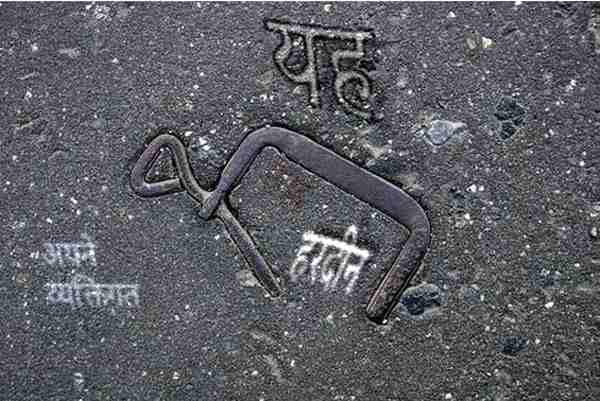 यह
हरदीन
अपने
व्यक्तिगत